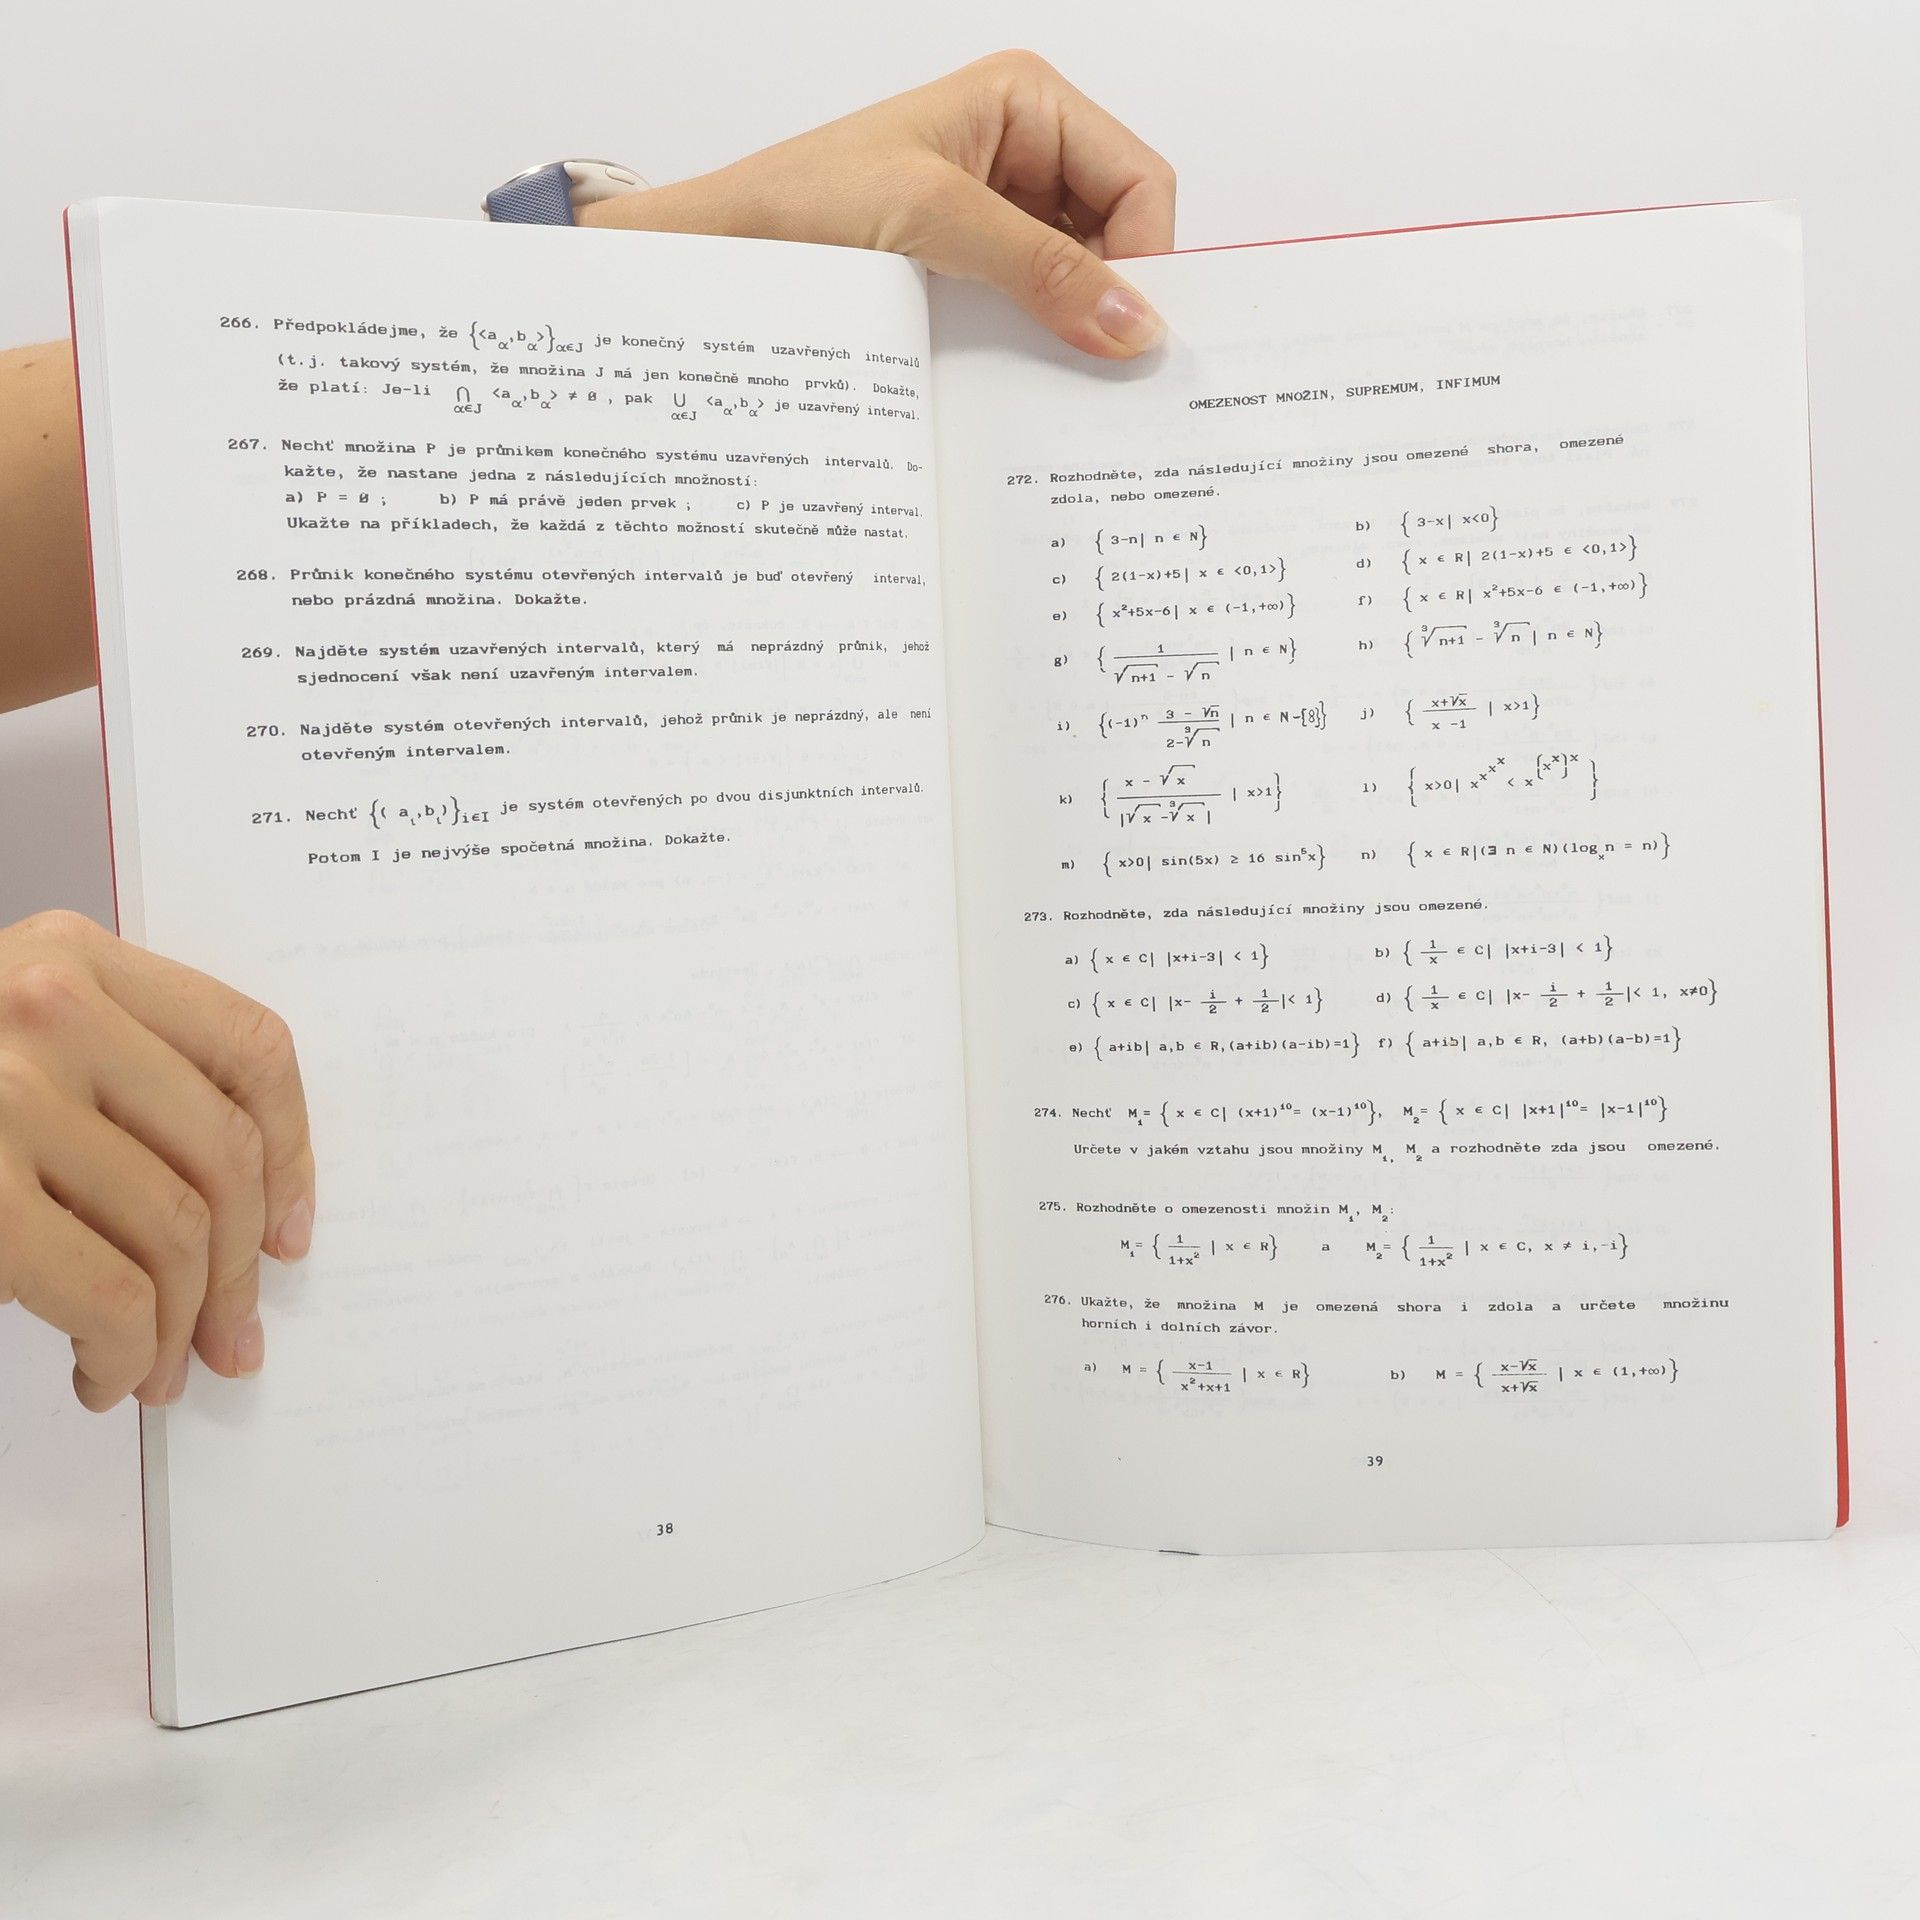 266. Předpokládejme, že {<a_α,b_α>}_α∈J je konečný systém uzavřených intervalů
(t.j. takový systém, že množina J má jen konečně mnoho prvků). Dokažte,
že platí: Je-li ⋂_α∈J <a_α,b_α> ≠ ø , pak ⋃_α∈J <a_α,b_α> je uzavřený interval.
267. Nechť množina P je průnikem konečného systému uzavřených intervalů. Do-
kažte, že nastane jedna z následujících množností:
a) P = ø ; b) P má právě jeden prvek ; c) P je uzavřený interval.
Ukažte na příkladech, že každá z těchto možností skutečně může nastat.
268. Průnik konečného systému otevřených intervalů je buď otevřený interval,
nebo prázdná množina. Dokažte.
269. Najděte systém uzavřených intervalů, který má neprázdný průnik, jehož
sjednocení však není uzavřeným intervalem.
270. Najděte systém otevřených intervalů, jehož průnik je neprázdný, ale není
otevřeným intervalem.
271. Nechť {( a_ι,b_ι)}_i∈I je systém otevřených po dvou disjunktních intervalů.
Potom I je nejvýše spočetná množina. Dokažte.
38
OMEZENOST MNOŽIN, SUPREMUM, INFIMUM
272. Rozhodněte, zda následující množiny jsou omezené shora, omezené
zdola, nebo omezené.
a) { 3-n| n ∈ N} b) { 3-x| x<0}
c) { 2(1-x)+5| x ∈ <0,1>} d) { x ∈ R| 2(1-x)+5 ∈ <0,1>}
e) { x²+5x-6| x ∈ (-1,+∞)} f) { x ∈ R| x²+5x-6 ∈ (-1,+∞)}
g) { 1/(√(n+1) - √n) | n ∈ N} h) { ³√(n+1) - ³√n | n ∈ N}
i) {(-1)ⁿ (3 - √n)/(2-³√n) | n ∈ N-{8}} j) { (x+√x)/(x -1) | x>1}
k) { (x - √x)/|√x -³√x| | x>1} l) { x>0| x^x^x^x < x^[x^x]^x }
m) { x>0| sin(5x) ≥ 16 sin⁵x} n) { x ∈ R|(∃ n ∈ N)(log_x n = n)}
273. Rozhodněte, zda následující množiny jsou omezené.
a) { x ∈ C| |x+i-3| < 1} b) { 1/x ∈ C| |x+i-3| < 1}
c) { x ∈ C| |x- i/2 + 1/2|< 1} d) { 1/x ∈ C| |x- i/2 + 1/2|< 1, x≠0}
e) { a+ib| a,b ∈ R,(a+ib)(a-ib)=1} f) { a+ib| a,b ∈ R, (a+b)(a-b)=1}
274. Nechť M₁= { x ∈ C| (x+1)¹⁰= (x-1)¹⁰}, M₂= { x ∈ C| |x+1|¹⁰= |x-1|¹⁰}
Určete v jakém vztahu jsou množiny M₁, M₂ a rozhodněte zda jsou omezené.
275. Rozhodněte o omezenosti množin M₁, M₂:
M₁= { 1/(1+x²) | x ∈ R} a M₂= { 1/(1+x²) | x ∈ C, x ≠ i,-i}
276. Ukažte, že množina M je omezená shora i zdola a určete množinu
horních i dolních závor.
a) M = { (x-1)/(x²+x+1) | x ∈ R} b) M = { (x-√x)/(x+√x) | x ∈ (1,+∞)}
39